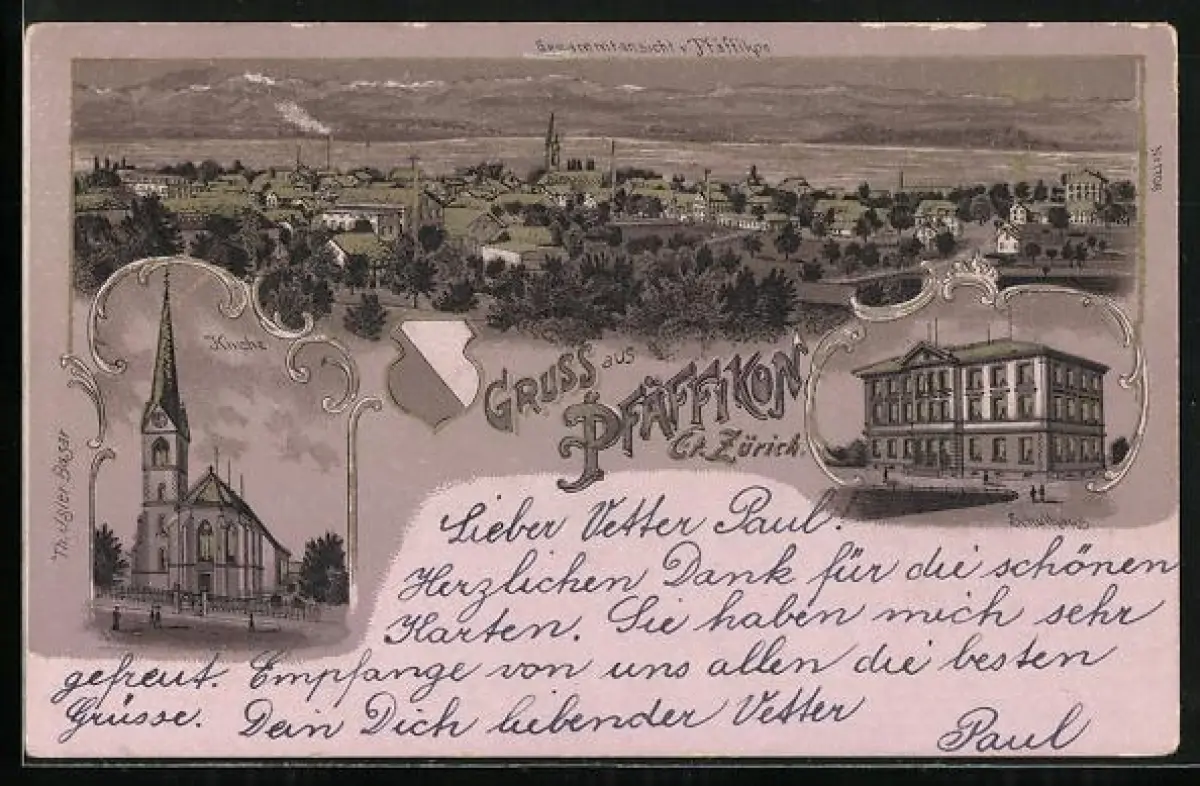 Gesammtansicht v. Pfäffikon
No 7706
Kirche
GRUSS aus
PFÄFFIKON
Ct. Zürich.
Schulhaus
Lieber Vetter Paul!
Herzlichen Dank für die schönen
Karten. Sie haben mich sehr
gefreut. Empfange von uns allen die besten
Grüsse. Dein Dich liebender Vetter
Paul